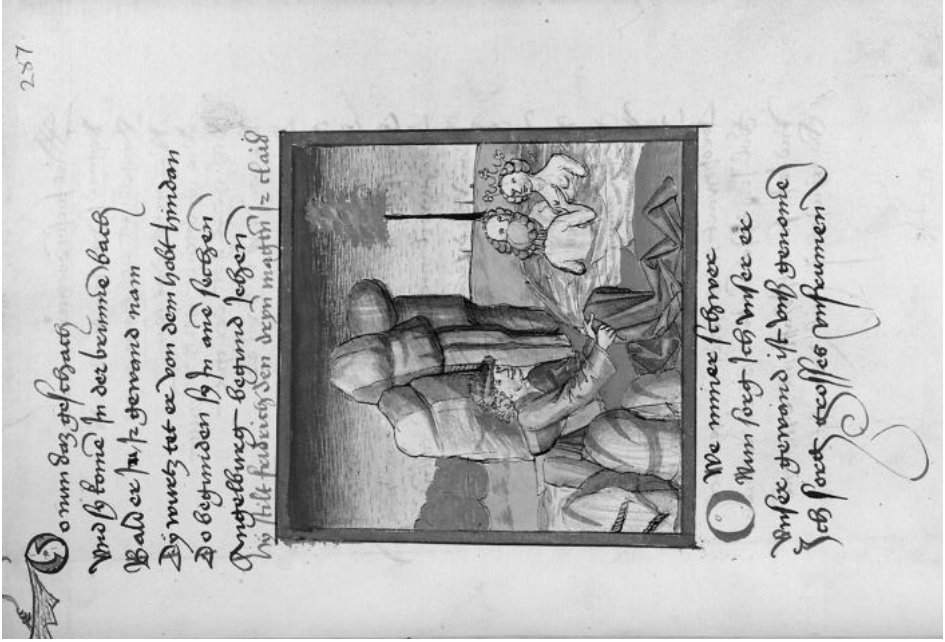 287
Do nun daz geschach
Vnd sÿ komē Jn der brunnē bach
Bald er Jn Jr gewand nam
Dÿ wurtz tet er von dem hobt hindan
Do begunden sÿ Jn ane sechen
Angelburg begund Jechen
hÿ stilt fridrich den dryn magtin Jr claid
O We miner schwer
Nun sorg Jch vnser er
Vnser gewand ist vnß genome
Jch sorg grosses vnfrumen